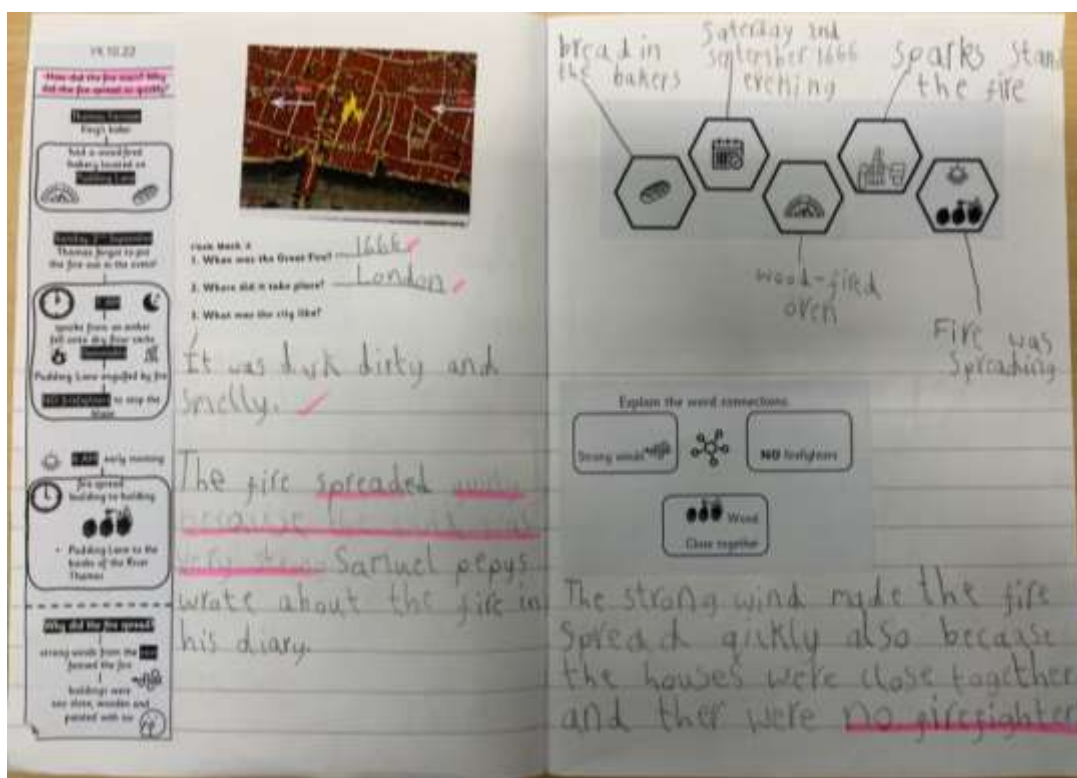 19.10.22
How did the fire start? Why
did the fire spread so quickly?
Thomas Farriner
King's baker
had a wood-fired
bakery located on
Pudding Lane
Sunday 2nd September
Thomas forgot to put
the fire out in the ovens!
1 AM
sparks from an ember
fell onto dry flour sacks
Pudding Lane engulfed by fire
NO firefighters to stop the
blaze
early morning
fire spread
building to building
• Pudding Lane to the
banks of the River
Thames
Why did the fire spread?
strong winds from the east
fanned the fire
buildings were
too close, wooden and
painted with
1. When was the Great Fire? 1666
2. Where did it take place? London
3. What was the city like?
It was dirty and
smelly.
The fire spreaded
because the wind was
very Samuel pepys
wrote about the fire in
his diary.
bread in
the bakers
Saterday 2nd
September 1666
evening
sparks start
the fire
wood-fired
oven
Fire was
Spreading
Explain the word connections.
Strong winds
NO firefighters
Wood
Close together
The strong wind made the fire
spread qickly also because
the houses were close together
and ther were no firefighter